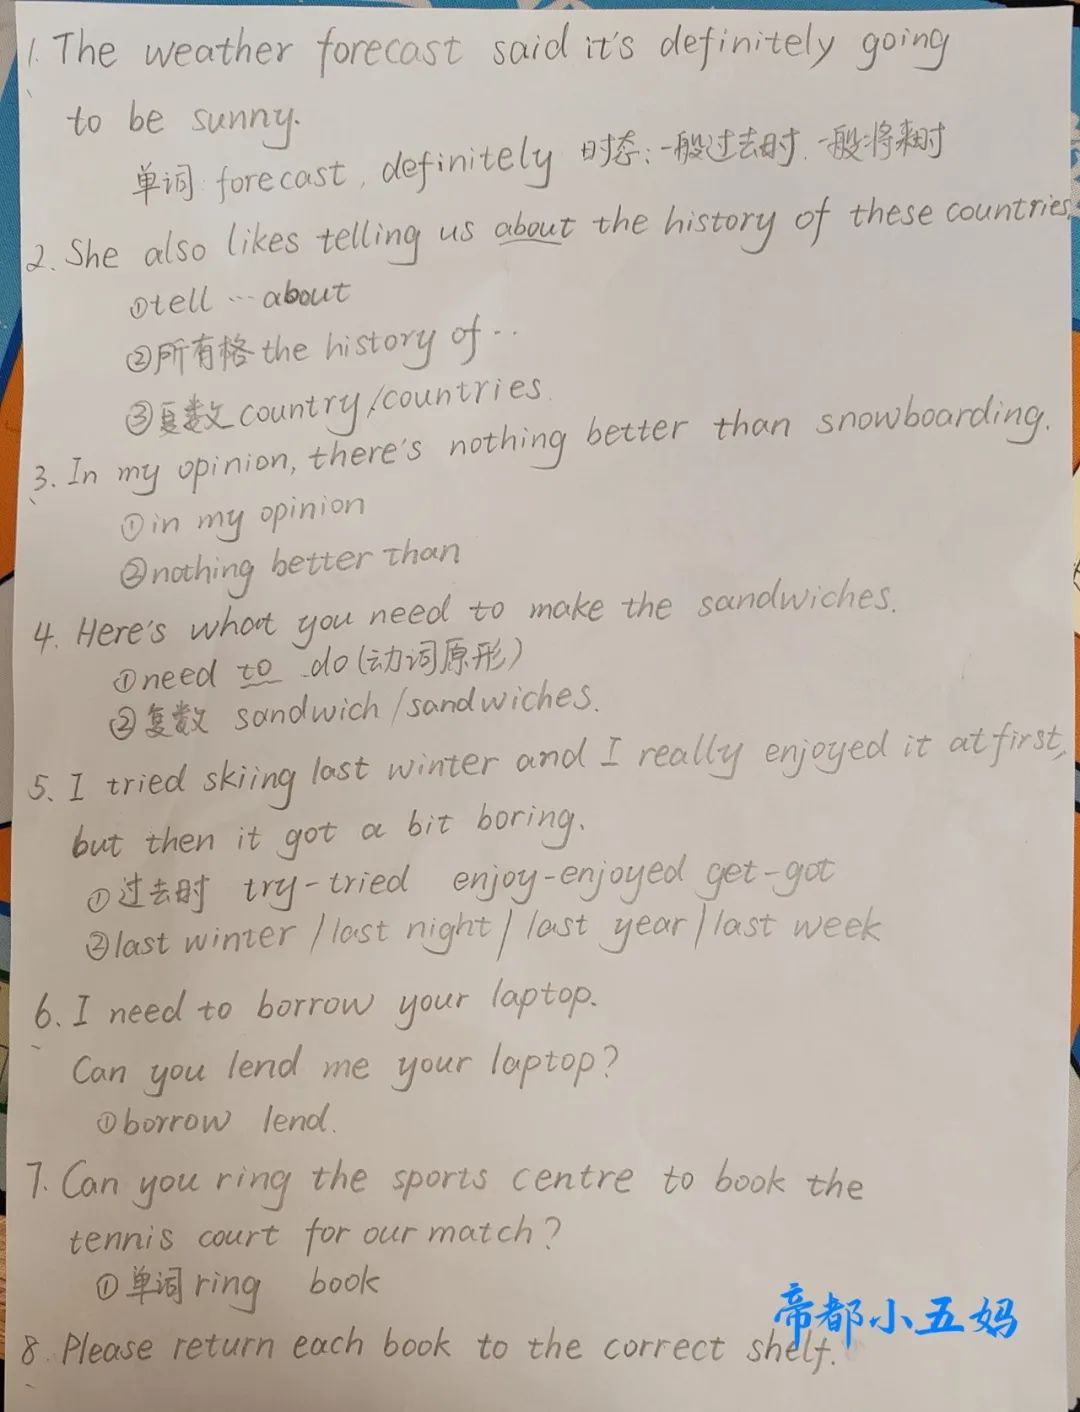 1. The weather forecast said it's definitely going
to be sunny.
单词: forecast, definitely 时态:一般过去时、一般将来时
2. She also likes telling us about the history of these countries
①tell … about
②所有格 the history of ..
③复数 country/countries.
3. In my opinion, there's nothing better than snowboarding.
①in my opinion
②nothing better than
4. Here's what you need to make the sandwiches.
①need to do (动词原形)
②复数 sandwich/sandwiches.
5. I tried skiing last winter and I really enjoyed it at first,
but then it got a bit boring.
①过去时 try-tried enjoy-enjoyed get-got
②last winter / last night / last year / last week
6. I need to borrow your laptop.
Can you lend me your laptop?
①borrow lend.
7. Can you ring the sports centre to book the
tennis court for our match?
①单词 ring book
8. Please return each book to the correct shelf.
帝都小五妈